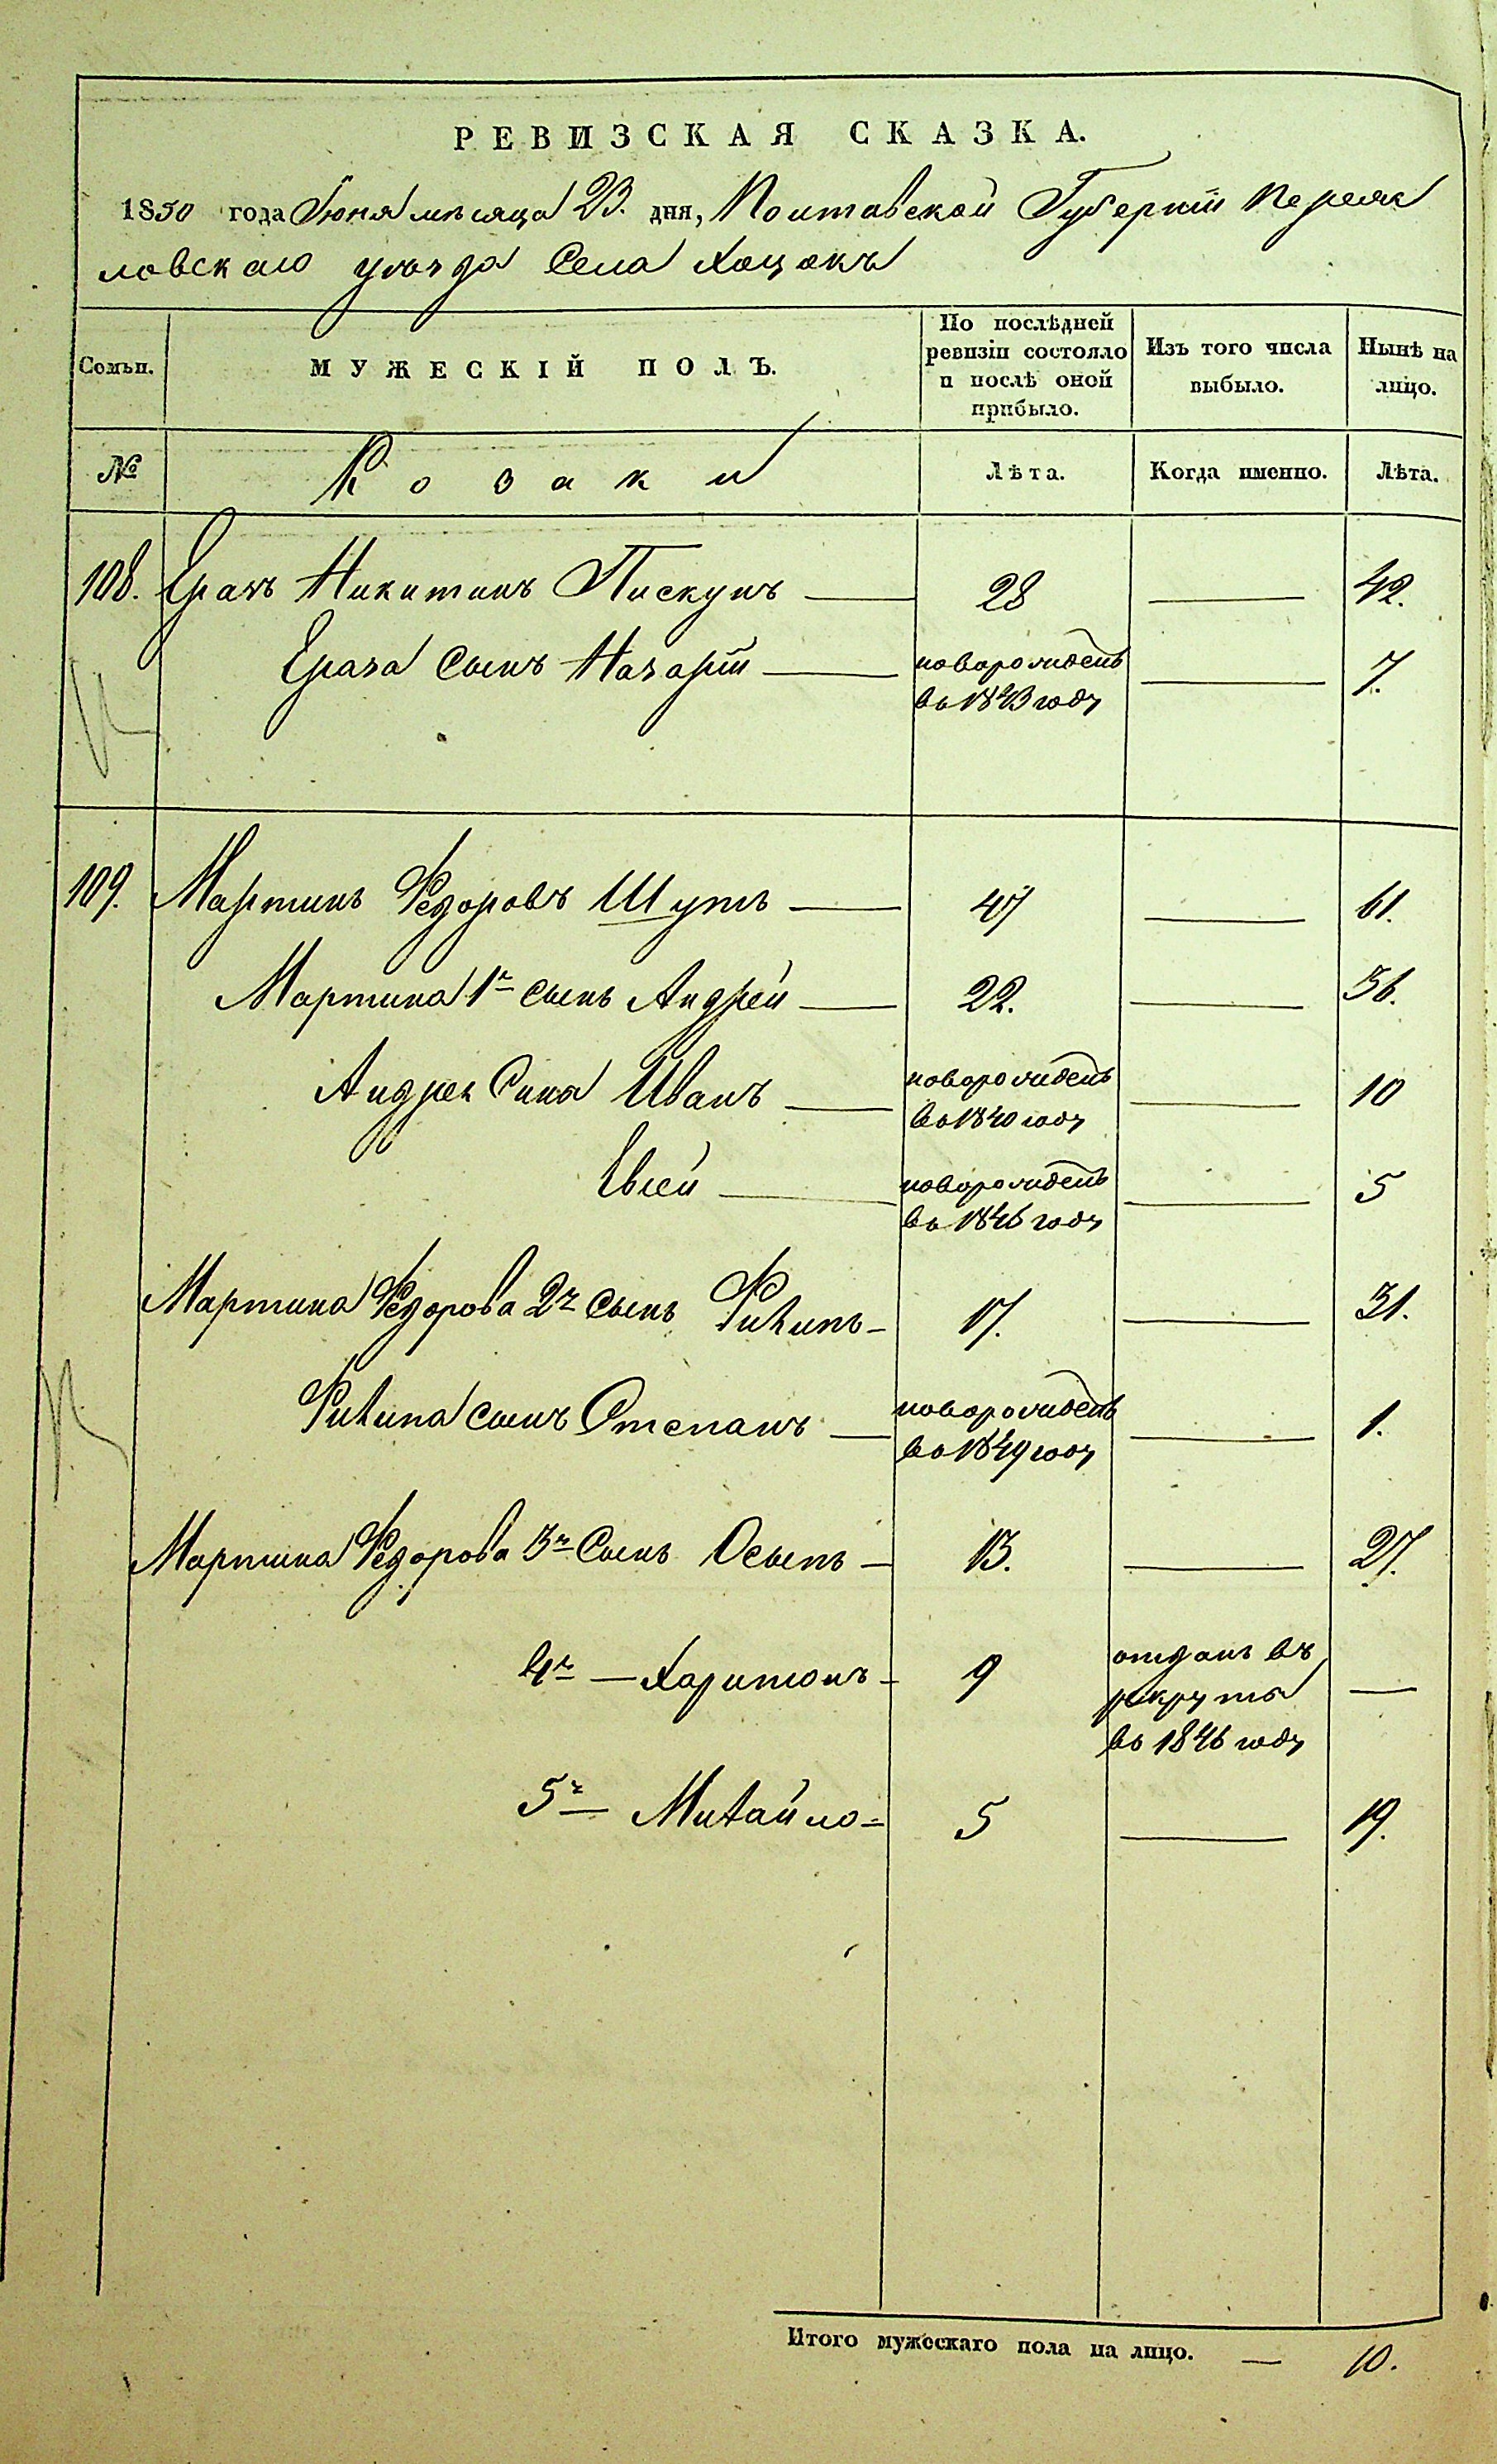 РЕВИЗСКАЯ СКАЗКА.
1850 года Іюня мѣсяца 23. дня, Полтавской Губерніи Переяс
ловскаго уѣзда Села Хоцокъ
Семьи.
МУЖЕСКІЙ ПОЛЪ.
По послѣдней
ревизіи состояло
и послѣ оной
прибыло.
Изъ того числа
выбыло.
Ныне на
лицо.
№
Козаки
Лѣта.
Когда именно.
Лѣта.
108. Никитинъ Пискунъ — 28 — 42.
сынъ Назарій — новорожденъ — 7.
во 1843 году
109. Мартинъ Федоровъ Шутъ — 47 — 61.
Мартина 1й сынъ Андрей — 22. — 36.
Андрея Сина Иванъ — новорожденъ — 10
во 1840 году
Евсей — новорожденъ — 5
во 1846 году
Мартина Федорова 2й сынъ Филипъ — 17. — 31.
Филипа сынъ Степанъ — новорожденъ — 1.
во 1849 году
Мартина Федорова 3й Сынъ Осыпъ — 13. — 27.
4й — Харитонъ — 9 отданъ въ —
рекруты
во 1846 году
5й — Михайло = 5 — 19.
Итого мужескаго пола на лицо. — 10.